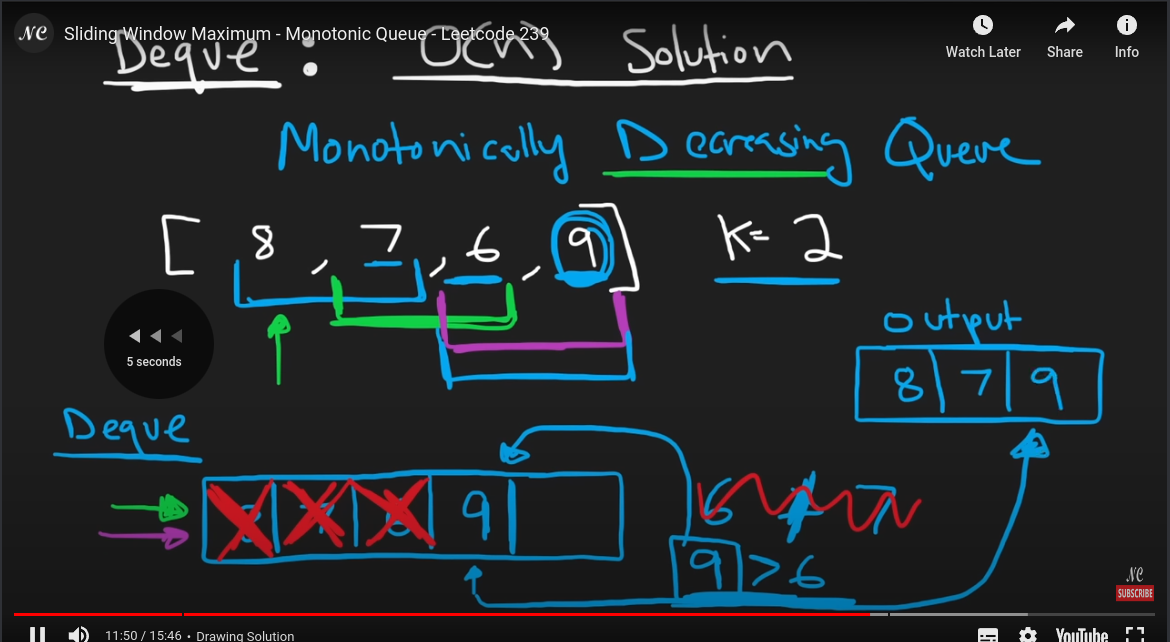 NC Sliding Window Maximum - Monotonic Queue - Leetcode 239
Watch Later Share Info
Deque : O(n) Solution
Monotonically Decreasing Queue
[ 8 , 7 , 6 , 9 ] K= 2
5 seconds
output
8 | 7 | 9
Deque
9
6 7
9 > 6
NC
SUBSCRIBE
11:50 / 15:46 • Drawing Solution
YouTube